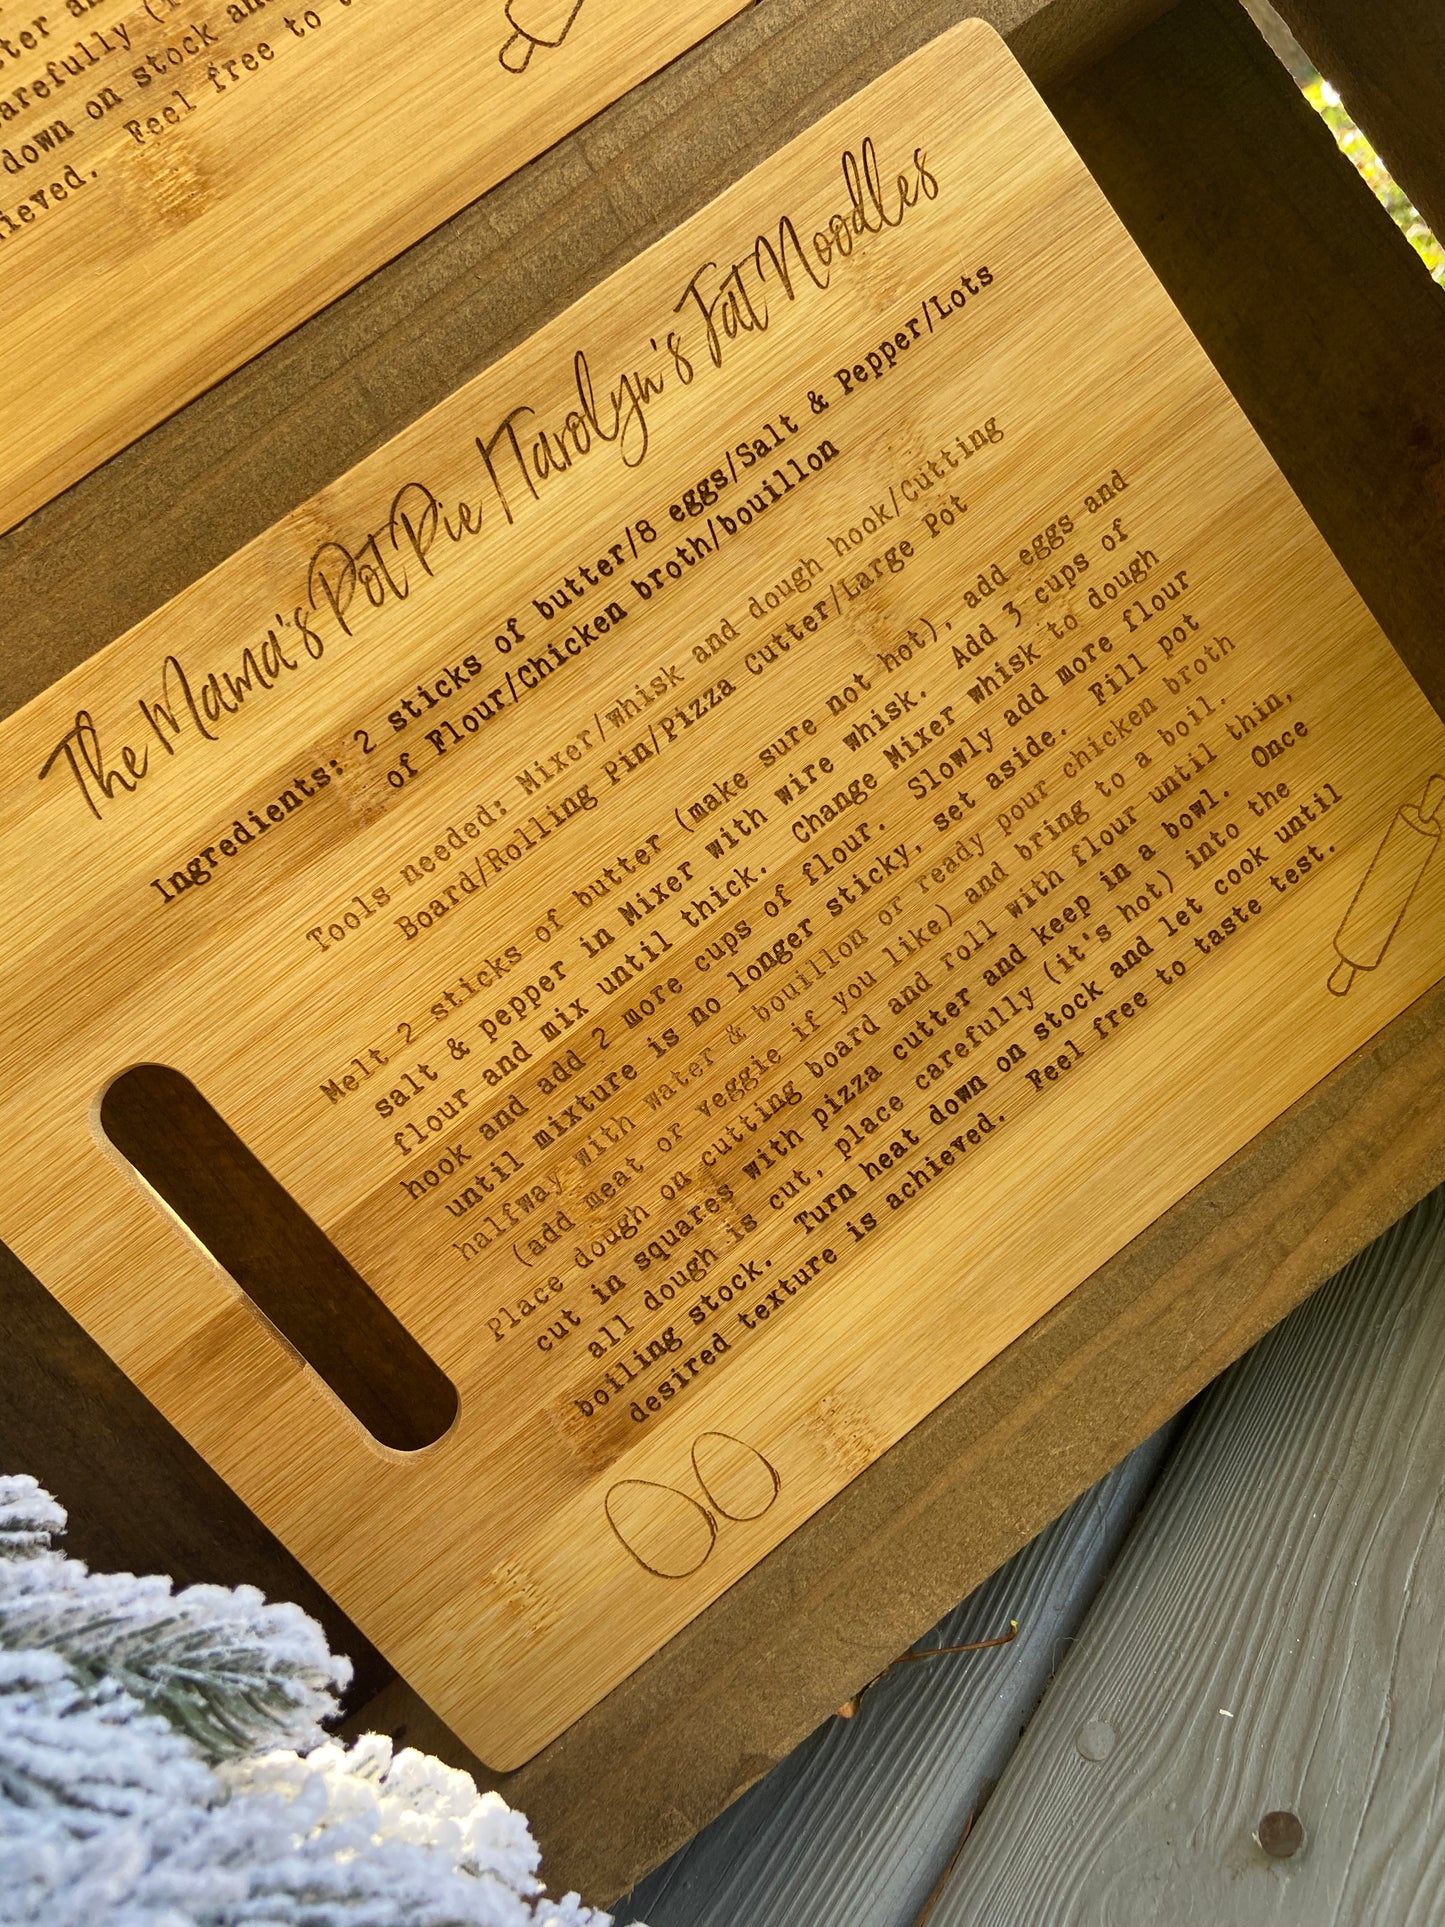 ter an
arefully (i
down on stock and
Feel free to t
ieved.
The Mama's Pot Pie /Tarolyn's Fat Noodles
Ingredients: 2 sticks of butter/8 eggs/Salt & Pepper/Lots
of Flour/Chicken broth/bouillon
Tools needed: Mixer/whisk and dough hook/Cutting
Board/Rolling Pin/Pizza Cutter/Large Pot
Melt 2 sticks of butter (make sure not hot), add eggs and
salt & pepper in Mixer with wire whisk. Add 3 cups of
flour and mix until thick. Change Mixer whisk to dough
hook and add 2 more cups of flour. Slowly add more flour
until mixture is no longer sticky, set aside. Fill pot
halfway with water & bouillon or ready pour chicken broth
(add meat or veggie if you like) and bring to a boil.
Place dough on cutting board and roll with flour until thin,
cut in squares with pizza cutter and keep in a bowl. Once
all dough is cut, place carefully (it's hot) into the
boiling stock. Turn heat down on stock and let cook until
desired texture is achieved. Feel free to taste test.